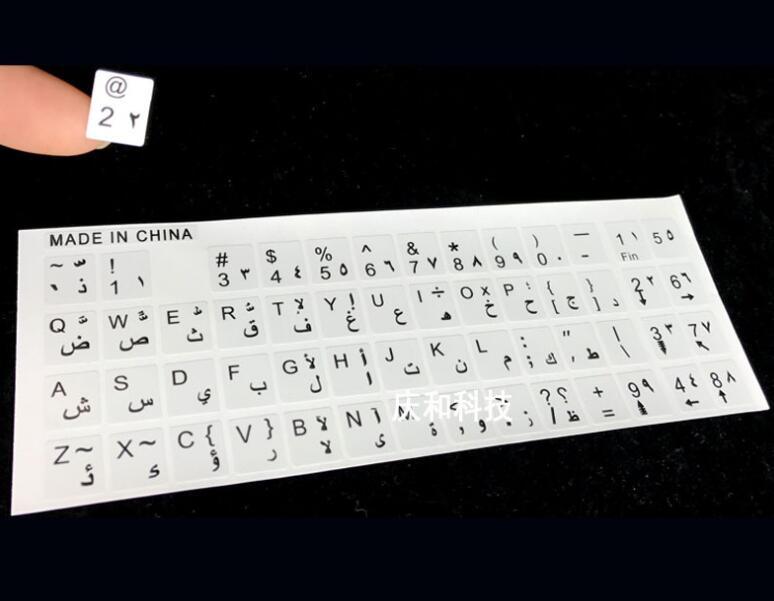 @
2 ٢
MADE IN CHINA
~ ّ ` ذ ! 1 ١ # 3 ٣ $ 4 ٤ % 5 ٥ ^ 6 ٦ & 7 ٧ * 8 ٨ ( 9 ٩ ) 0 ٠ — - 1 ١ Fin 5 ٥
Q ً ض W ٌ ص E ُ ث R ٌ ق T لإ ف Y إ غ U ع I ÷ ه O x خ P ؛ ح { [ ج } ] د 2 ٢ ↓ 6 ٦ →
A ش S س D ي F ب G لأ ل H أ ا J ت K ن L م : ; ك " ' ط | \ 3 ٣ 7 ٧ ↖
Z ~ ئ X ~ ء C { ؤ V } ر B لآ لا N آ ى ة و ز ? ؟ ظ + = 9 ٩ 4 ٤ ← 8 ٨ ↑
庆和科技